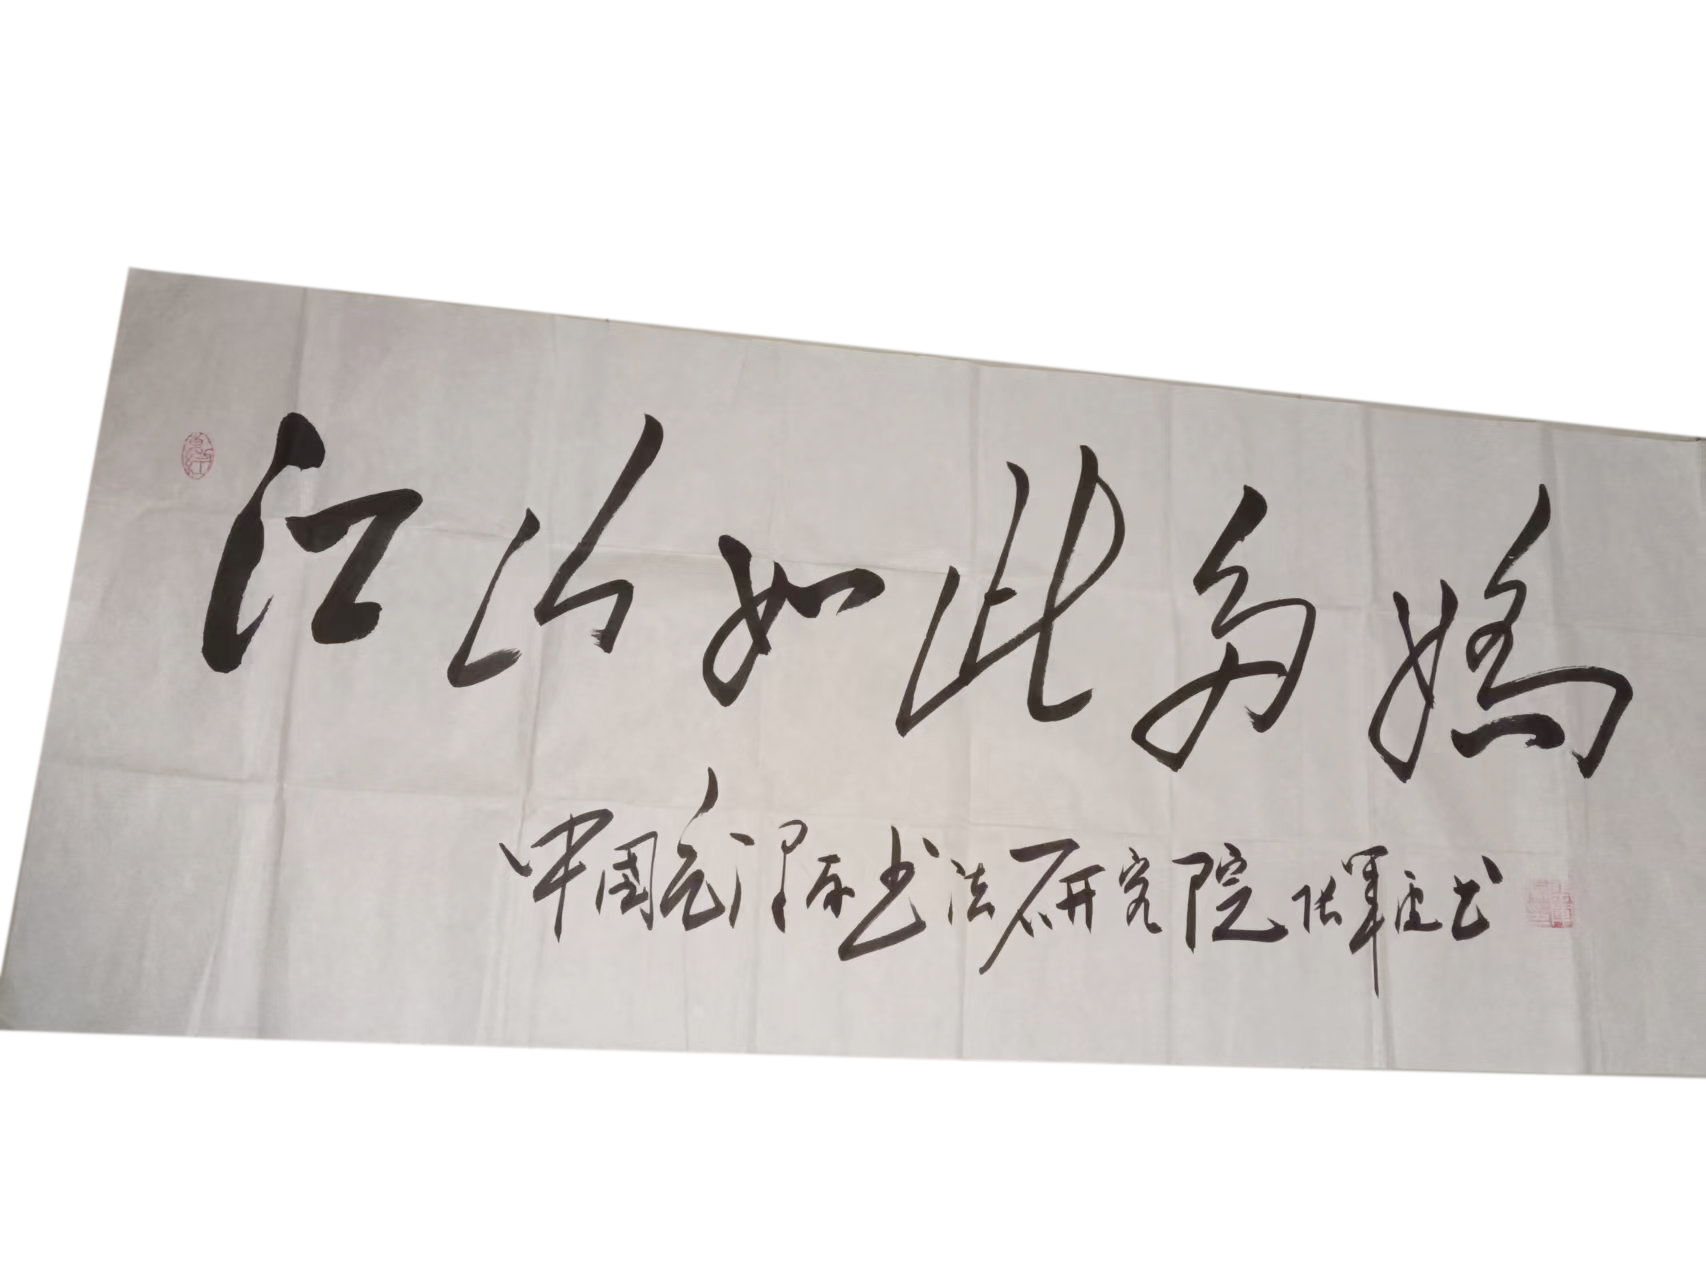 江山如此多娇
中国毛泽东书法研究院 张军 书